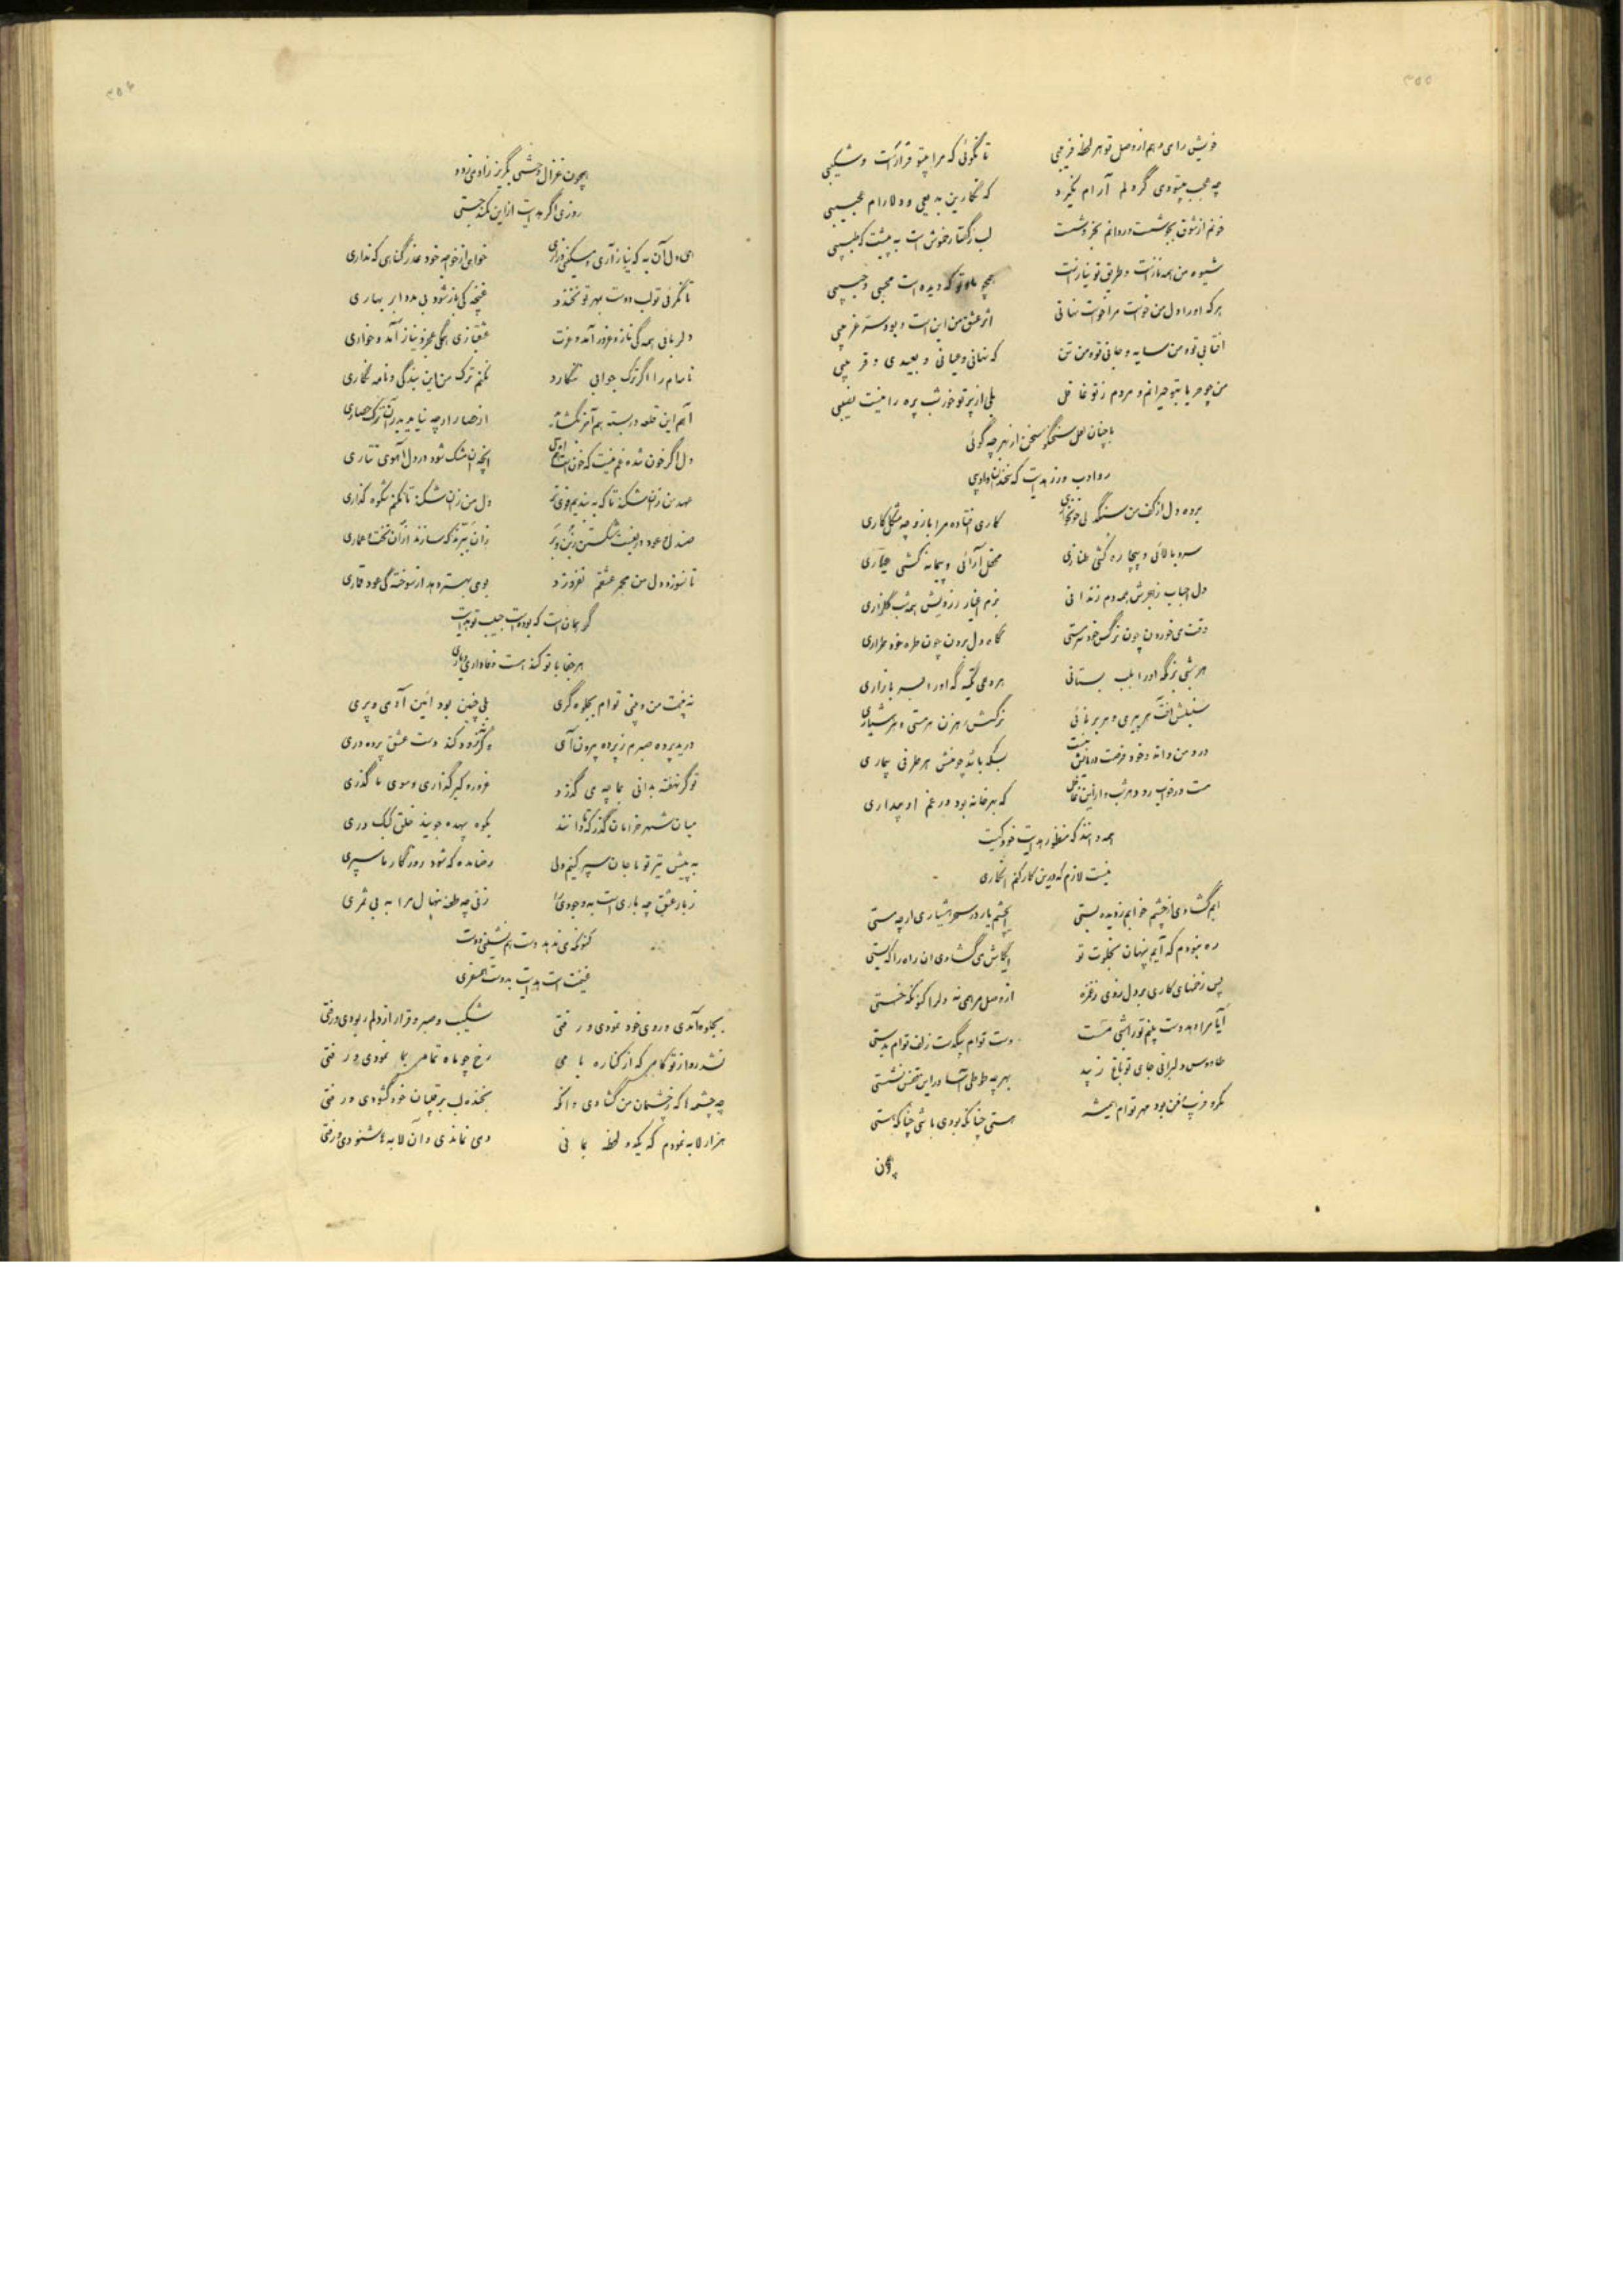 ۳۵۵
خویش را می‌دهم از وصل تو هر لحظه فریبی تا نگوئی که مرا بیتو قرار است و شکیبی
چه عجب بیتو دمی گر دلم آرام نگیرد که نگارین بدیعی و دلارام عجیبی
خونم از شوق بجوش است و روانم بخروش است لب ز گفتار خموش است به پیشت که طبیبی
شیوه من همه ناز است و طریق تو نیاز است همچو ما و تو که دیده است محبی و حبیبی
هرکه او را دل من خواست مرا خواست نهانی اثر عشق همین است و بود سر غریبی
آفتابی تو و من سایه و جانی تو و من تن که نهانی و عیانی و بعیدی و قریبی
من چو حربا بتو حیرانم و مردم ز تو غافل بلی از پرتو خور شب پره را نیست نصیبی
با چنان لعل سخنگو سخن از بهر چه گوئی
رو ادب ورز هدایت که
برده دل از کف من سنگدلی خونخواری کاری افتاده مرا باز و چه مشکل کاری
سرو بالائی و بیچاره کشی طنازی محفل آرائی و پیمانه کشی عیاری
دل احباب ز هجرش همه دم زندانی بزم اغیار ز رویش همه شب گلزاری
وقت می خوردن چون نرگس خود سرمستی گاه دل بردن چون طره خود طراری
هر شبی بزمگه او را بلب بستانی هر دمی تکیه گه او را بسر بازاری
سنبلش آفت هر پیری و هر برنائی نرگسش رهزن هر مستی و هر هشیاری
درد من داند و خود فرصت درمانش نیست بسکه باشد چو منش هر طرفی بیماری
مست در خواب رود هر شب و از این غافل که بهر خانه بود در غم او بیداری
همه دانند که منظور هدایت خود کیست
نیست لازم که درین کار کنم انکاری
ایم گشادی از چشم خوابم ز دیده بستی چشم یار در سحر هشیاری ار چه مستی
ره نبودم که آیم پنهان بخلوت تو ایکاش می‌گشادی آن راه را که بستی
پس زخمهای کاری بر دل زدی ز غمزه از وصل مرهمی نه دلرا کنون که خستی
آیا مرا دهد دست بینم تو را شبی مست دست توام بگردن زلف توام بدستی
طاووس دلبرانی جای تو باغ زیبد بهر چه طوطی آسا در این قفس نشستی
مکر و فریب و فن بود مهر توام همیشه هستی چنانکه بودی باشی چنانکه هستی
چون
۳۵۶
همچون غزال وحشی بگریز ز آدمی زود
روزی اگر هدایت از این کمند جستی
ای دل آن به که نیاز آری و مسکینی و زاری خواهی از خواجه خود عذر گناهی که نداری
تا نگرئی تو لب دوست بهر تو نخندد غنچه کی باز شود بی مدد ابر بهاری
دلربائی همه گی ناز و غرور آمد و عزت عشقبازی همگی عجز و نیاز آمد و خواری
نامه‌ام را اگر ترک جوابی ننگارد نکنم ترک من این بندگی و نامه نگاری
آهم این قلعه در بسته هم آخر بگشاید از حصار ارچه نیاید بدر آن ترک حصاری
دل اگر خون شده غم نیست که خون است آخر آنچه آن مشک شود در دل آهوی تتاری
عهد من زان شکند تا که به بندیم دل من زان شکند تا نکنم شکوه گذاری
صندل و عود زان تبرند که سازند از آن تخت و عماری
تا نسوزد دل من مجمر عشقم نفروزد بوی بهتر دهد از سوختگی عود قماری
گر همان است که بوده است حبیب تو هدایت
هر جفا با تو کند هست وفاداری و یاری
نه نیست من و منی توام بجلوه گری بلی چنین بود آئین آدمی و پری
درید پرده صبرم ز پرده بیرون آی وگرنه زود کند دست عشق پرده دری
تو گر نهفته بدانی بما چه می گذرد غرور و کبر گذاری و سوی ما گذری
میان شهر خرامان گذر که تا دانند بکوه بیهده جویند خلق کبک دری
به پیش تیر تو ما جان سپر کنیم ولی رضا مده که شود روزگار ما سپری
ز بار عشق چه باری است به وجود مرا زنی چه طعنه نهال مرا به بی ثمری
کنونکه می ندهد دست همنشینی دوست
غنیمت است هدایت بدوست همسفری
بجلوه آمدی و روی خود نمودی و رفتی شکیب و صبر و قرار از دلم ربودی و رفتی
نشد روا ز تو کامم که از کناره بامی رخ چو ماه تمامی بما نمودی و رفتی
چه چشمه ها که ز چشمان من گشادی و آنگه بخنده لب برقیبان خود گشودی و رفتی
هزار لابه نمودم که یکدو لحظه بمانی دمی نماندی و آن لابه ها شنودی و رفتی